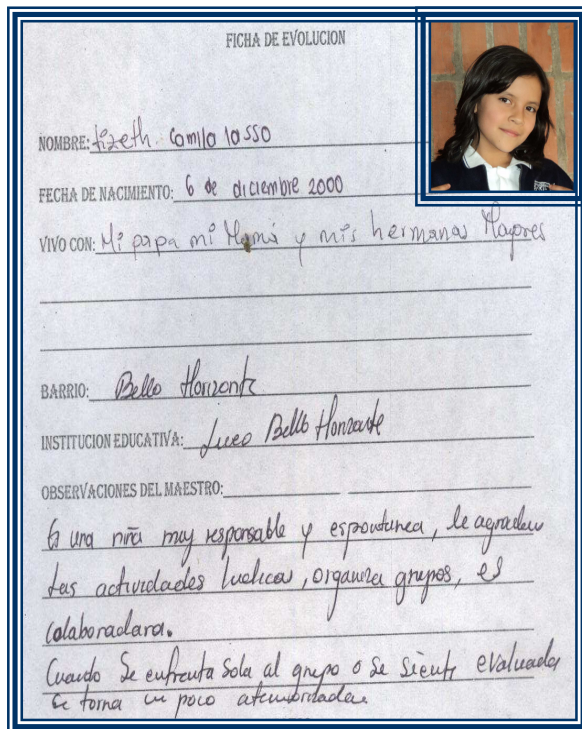 FICHA DE EVOLUCION
NOMBRE: Lizeth Camila Lasso
FECHA DE NACIMIENTO: 6 de diciembre 2000
VIVO CON: Mi papa mi Mamá y mis hermanas Mayores
BARRIO: Bello Horizonte
INSTITUCION EDUCATIVA: Liceo Bello Horizonte
OBSERVACIONES DEL MAESTRO:
Es una niña muy responsable y espontanea, le agradan
las actividades ludicas, organiza grupos, es
colaboradora.
Cuando se enfrenta sola al grupo o se siente evaluada
se torna un poco atemorizada.